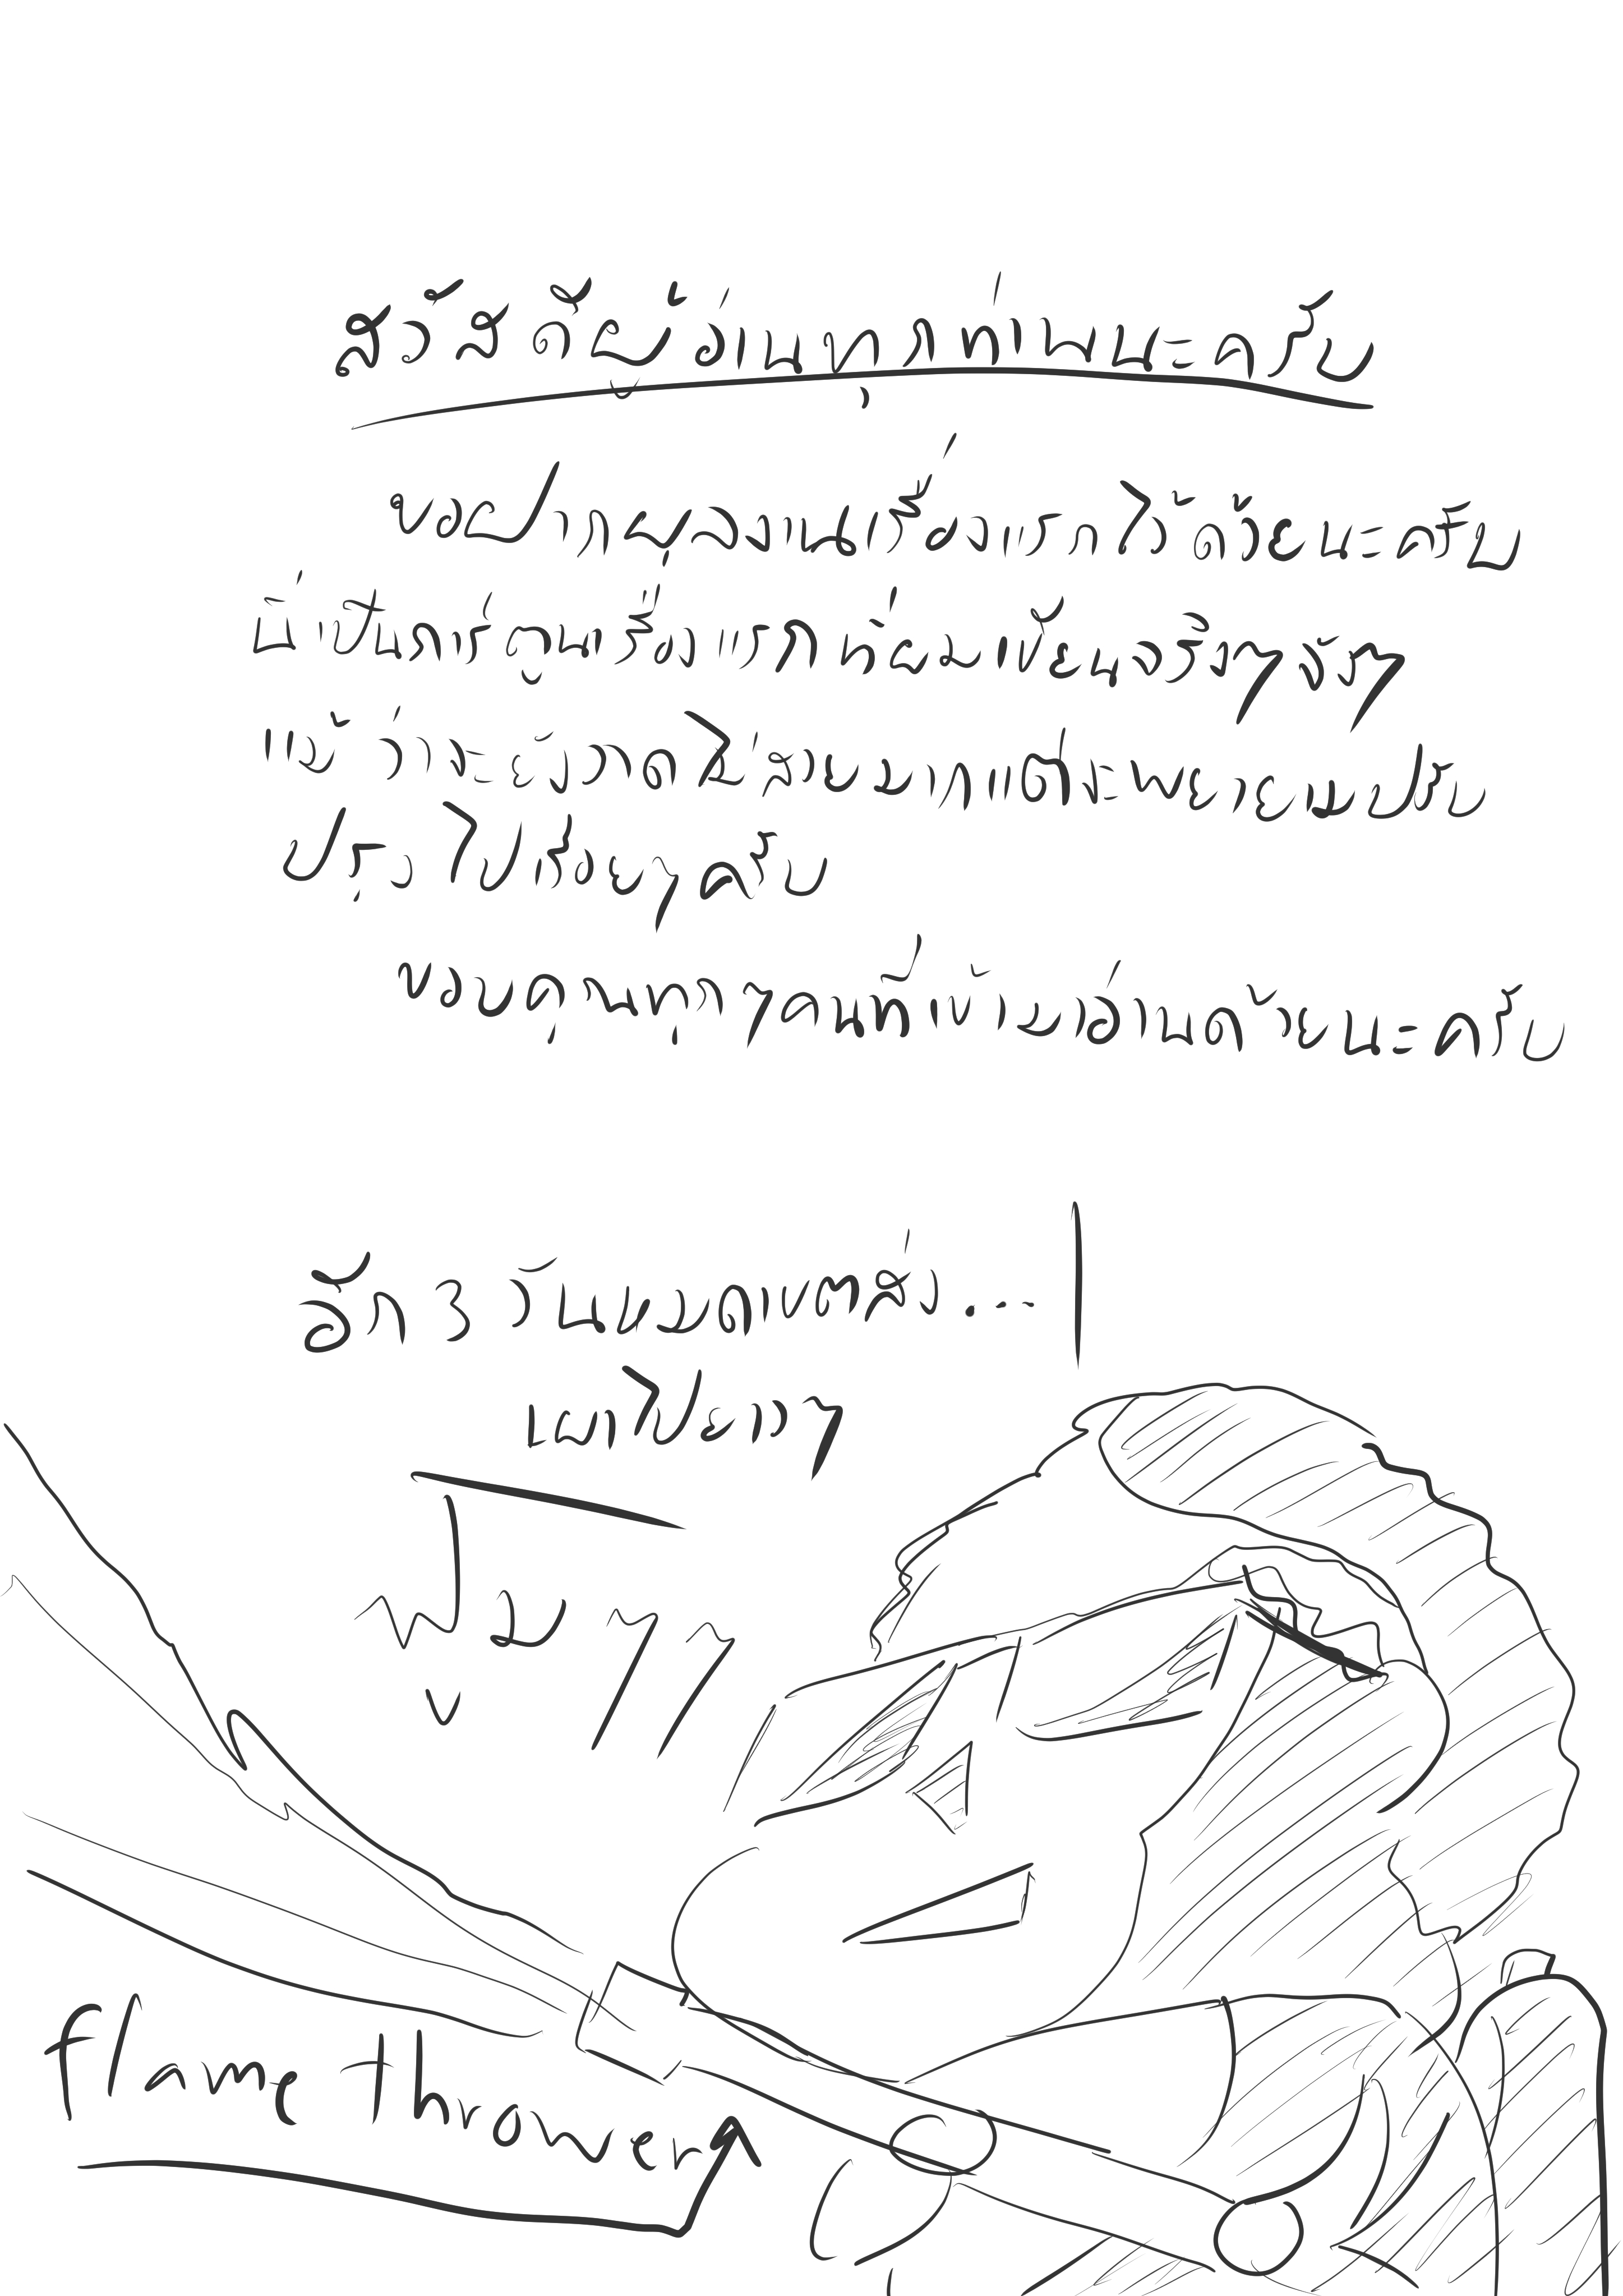 สวัสดีผู้อ่านทุกท่านนะครับ
ขอฝากผลงานเรื่องแรกไว้ด้วยนะครับ
นี่เป็นการ์ตูนเรื่องแรกที่ลองเขียนจริงๆจังๆ
แม้ว่าจะยังวาดไม่สวยมากแต่จะพยายามปรับ
ปรุงไปเรื่อยๆครับ
ขอบคุณทุกๆคนที่เข้ามาอ่านด้วยนะครับ
อีก 3 วัน แมวดาบหลัง...
เผาไปยาวๆ
ฟู่มๆๆ
flame thrower